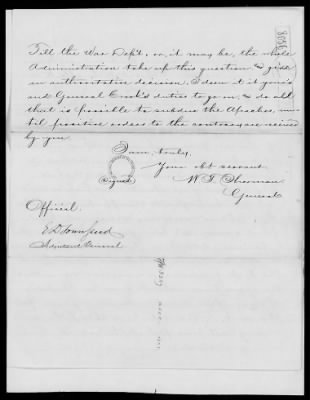 Till the War Dep't, or, it may be, the whole
Administration take up this question & give
an authoritative decision, I deem it yours
and General Crook's duties to go on, & do all
that is possible to subdue the Apaches, un-
til positive orders to the contrary are received
by you.
I am, truly,
Your obt servant
signed W. T. Sherman
General
Official.
E. D. Townsend
Adjutant General